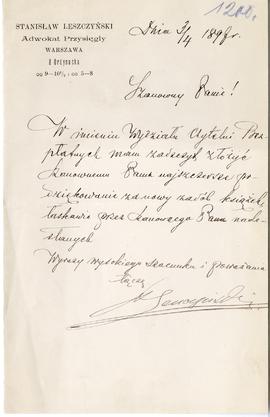 STANISŁAW LESZCZYŃSKI
Adwokat Przysięgły
WARSZAWA
Ordynacka
od 9—10½ i od 5—8
Dnia 3/4 1897 r.
Szanowny Panie!
W imieniu Wydziału Czytelni Bez-
płatnych mam zaszczyt złożyć
Szanownemu Panu najszczersze po-
dziękowanie za nowy zasób książek,
łaskawie przez Szanownego Pana nade-
słanych
Wyrazy wysokiego szacunku i poważania
łączę